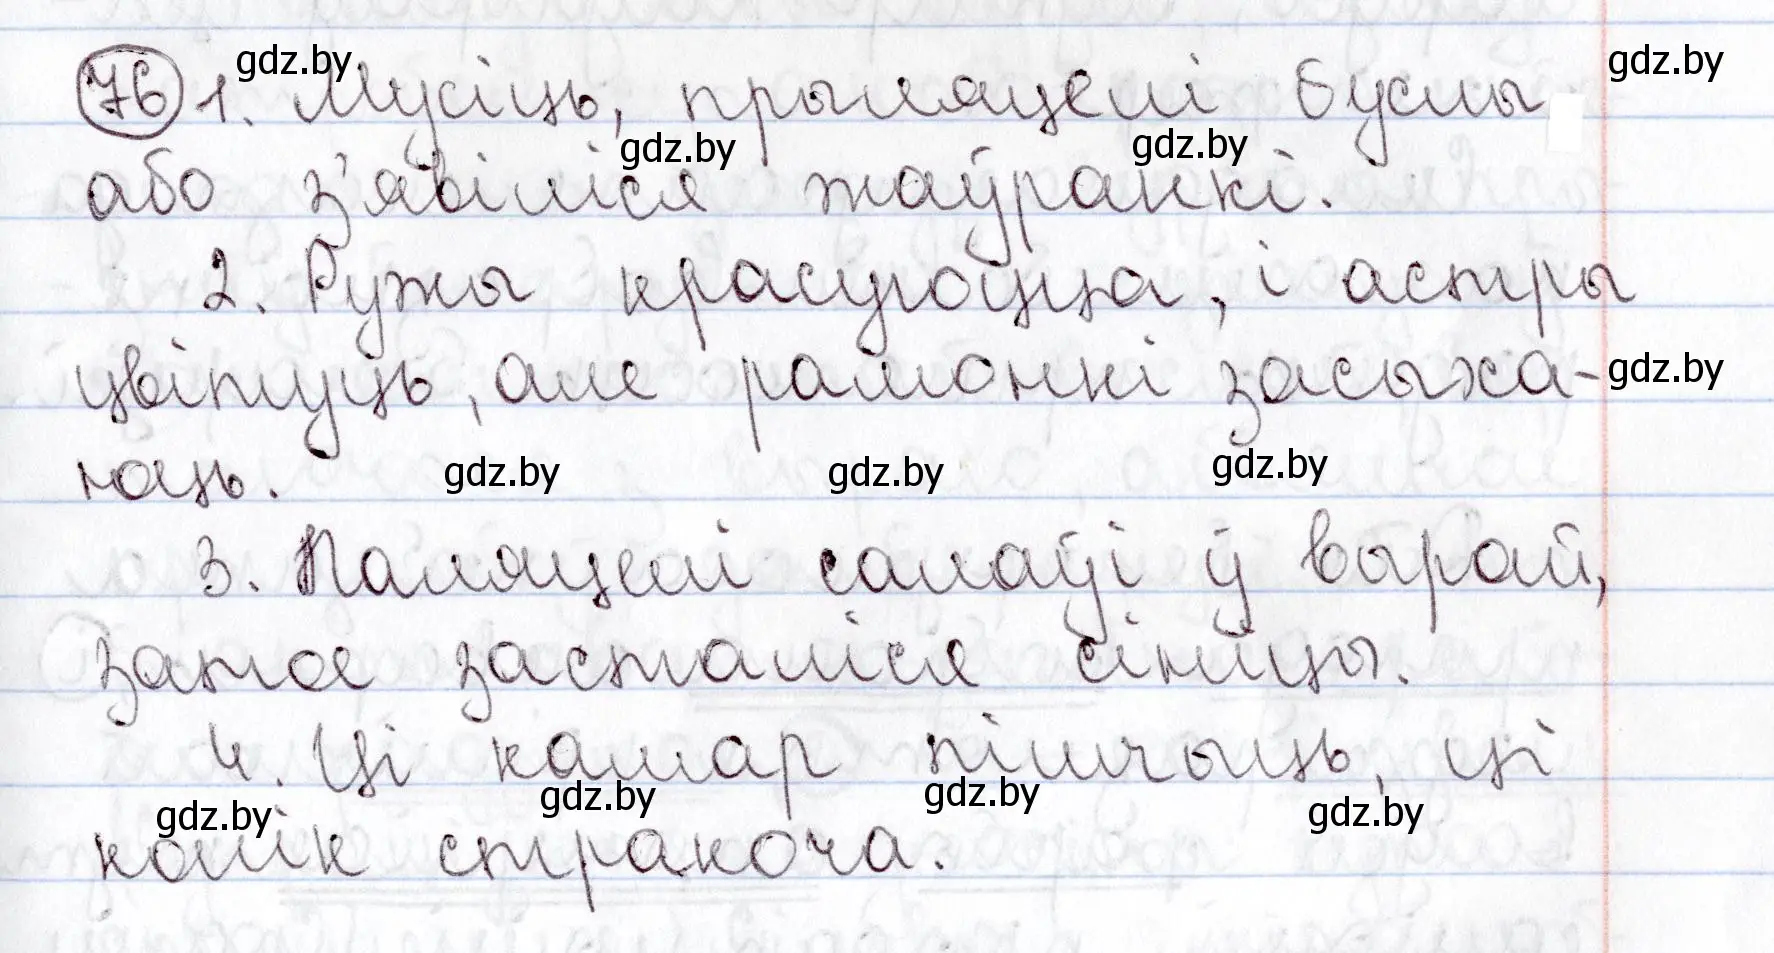 76 1. Мусіць, прыляцелі буслы
або з'явіліся жаўранкі.
2. Ружы красуюцца, і астры
цвітуць, але рамонкі засыха-
юць.
3. Паляцелі салаўі ў вырай,
затое засталіся сініцы.
4. Ці камар пілчыць, ці
конік стракоча.
gdz.by
gdz.by
gdz.by
gdz.by
gdz.by
gdz.by
gdz.by
gdz.by
gdz.by
gdz.by
gdz.by
gdz.by